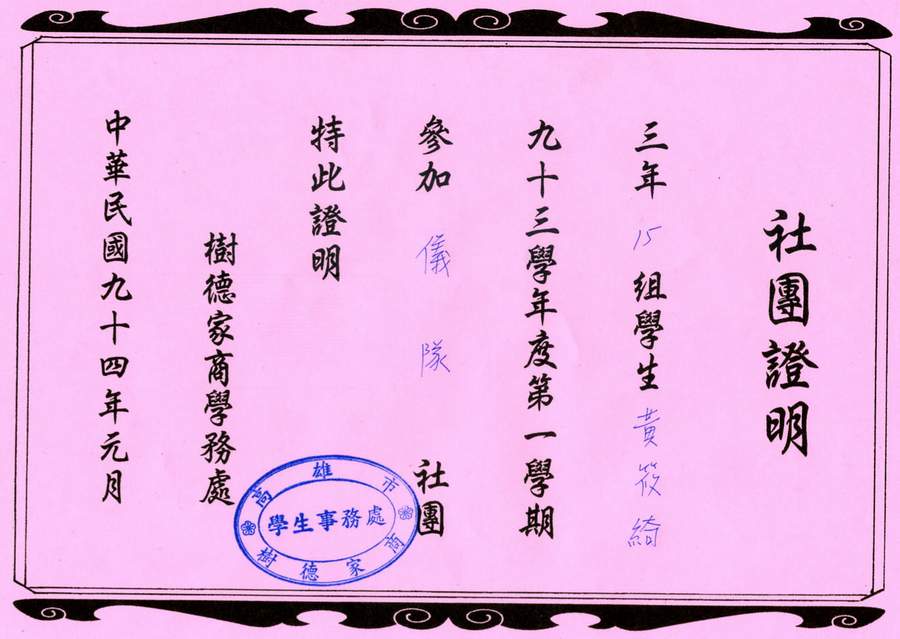 社團證明
三年15組學生黃筱綺
九十三學年度第一學期
參加儀隊社團
特此證明
樹德家商學務處
中華民國九十四年元月
高雄市
學生事務處
樹德家商